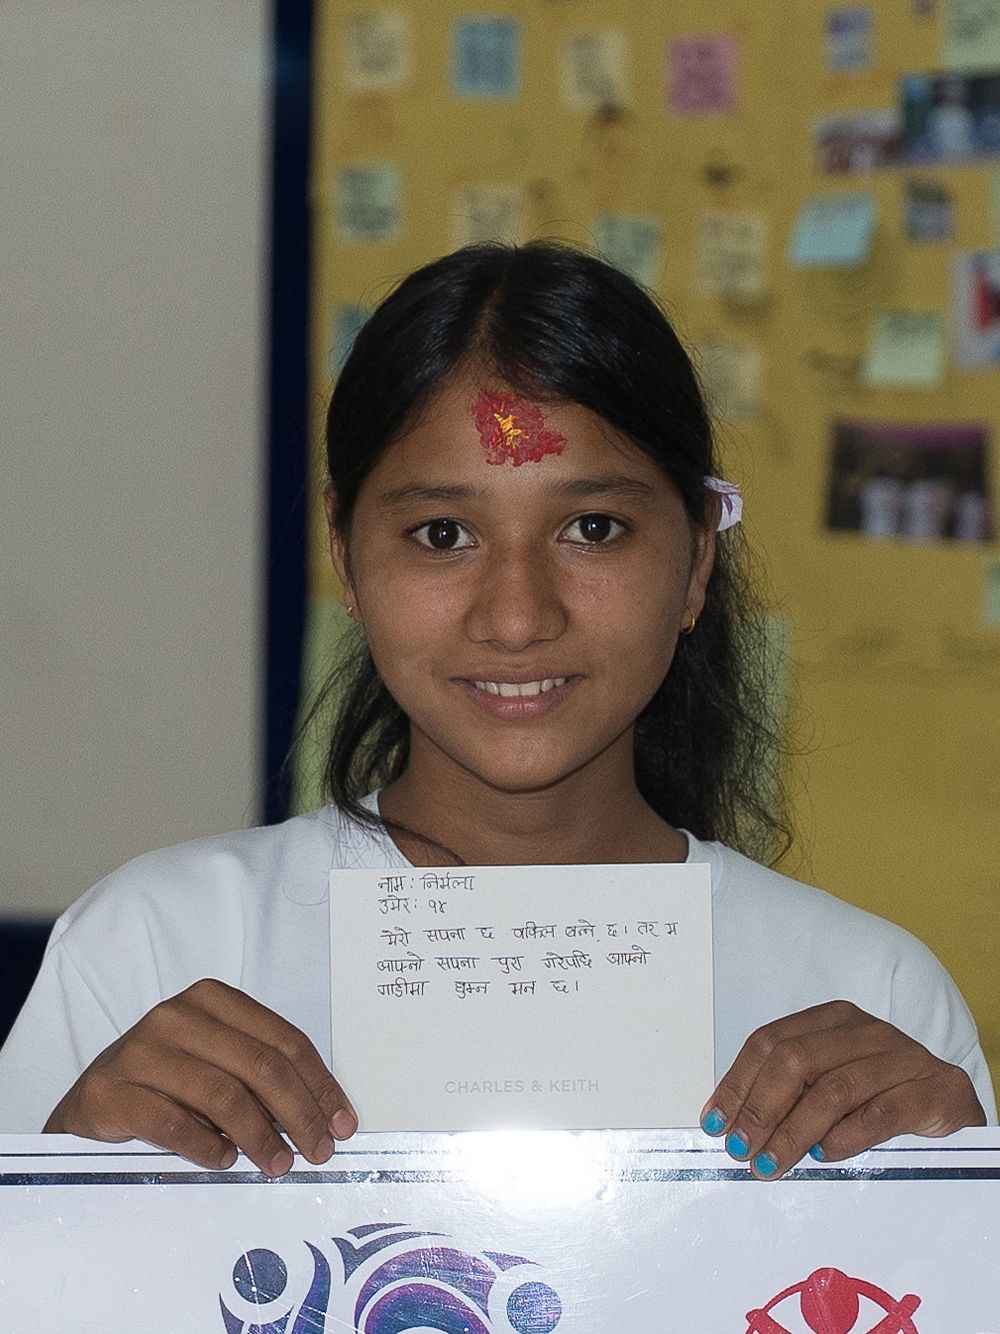 नाम : निर्मला
उमेर : १४
मेरो सपना छ वकिल बन्ने छ। तर म
आफ्नो सपना पुरा गरेपछि आफ्नो
गाडीमा घुम्न मन छ।
CHARLES & KEITH